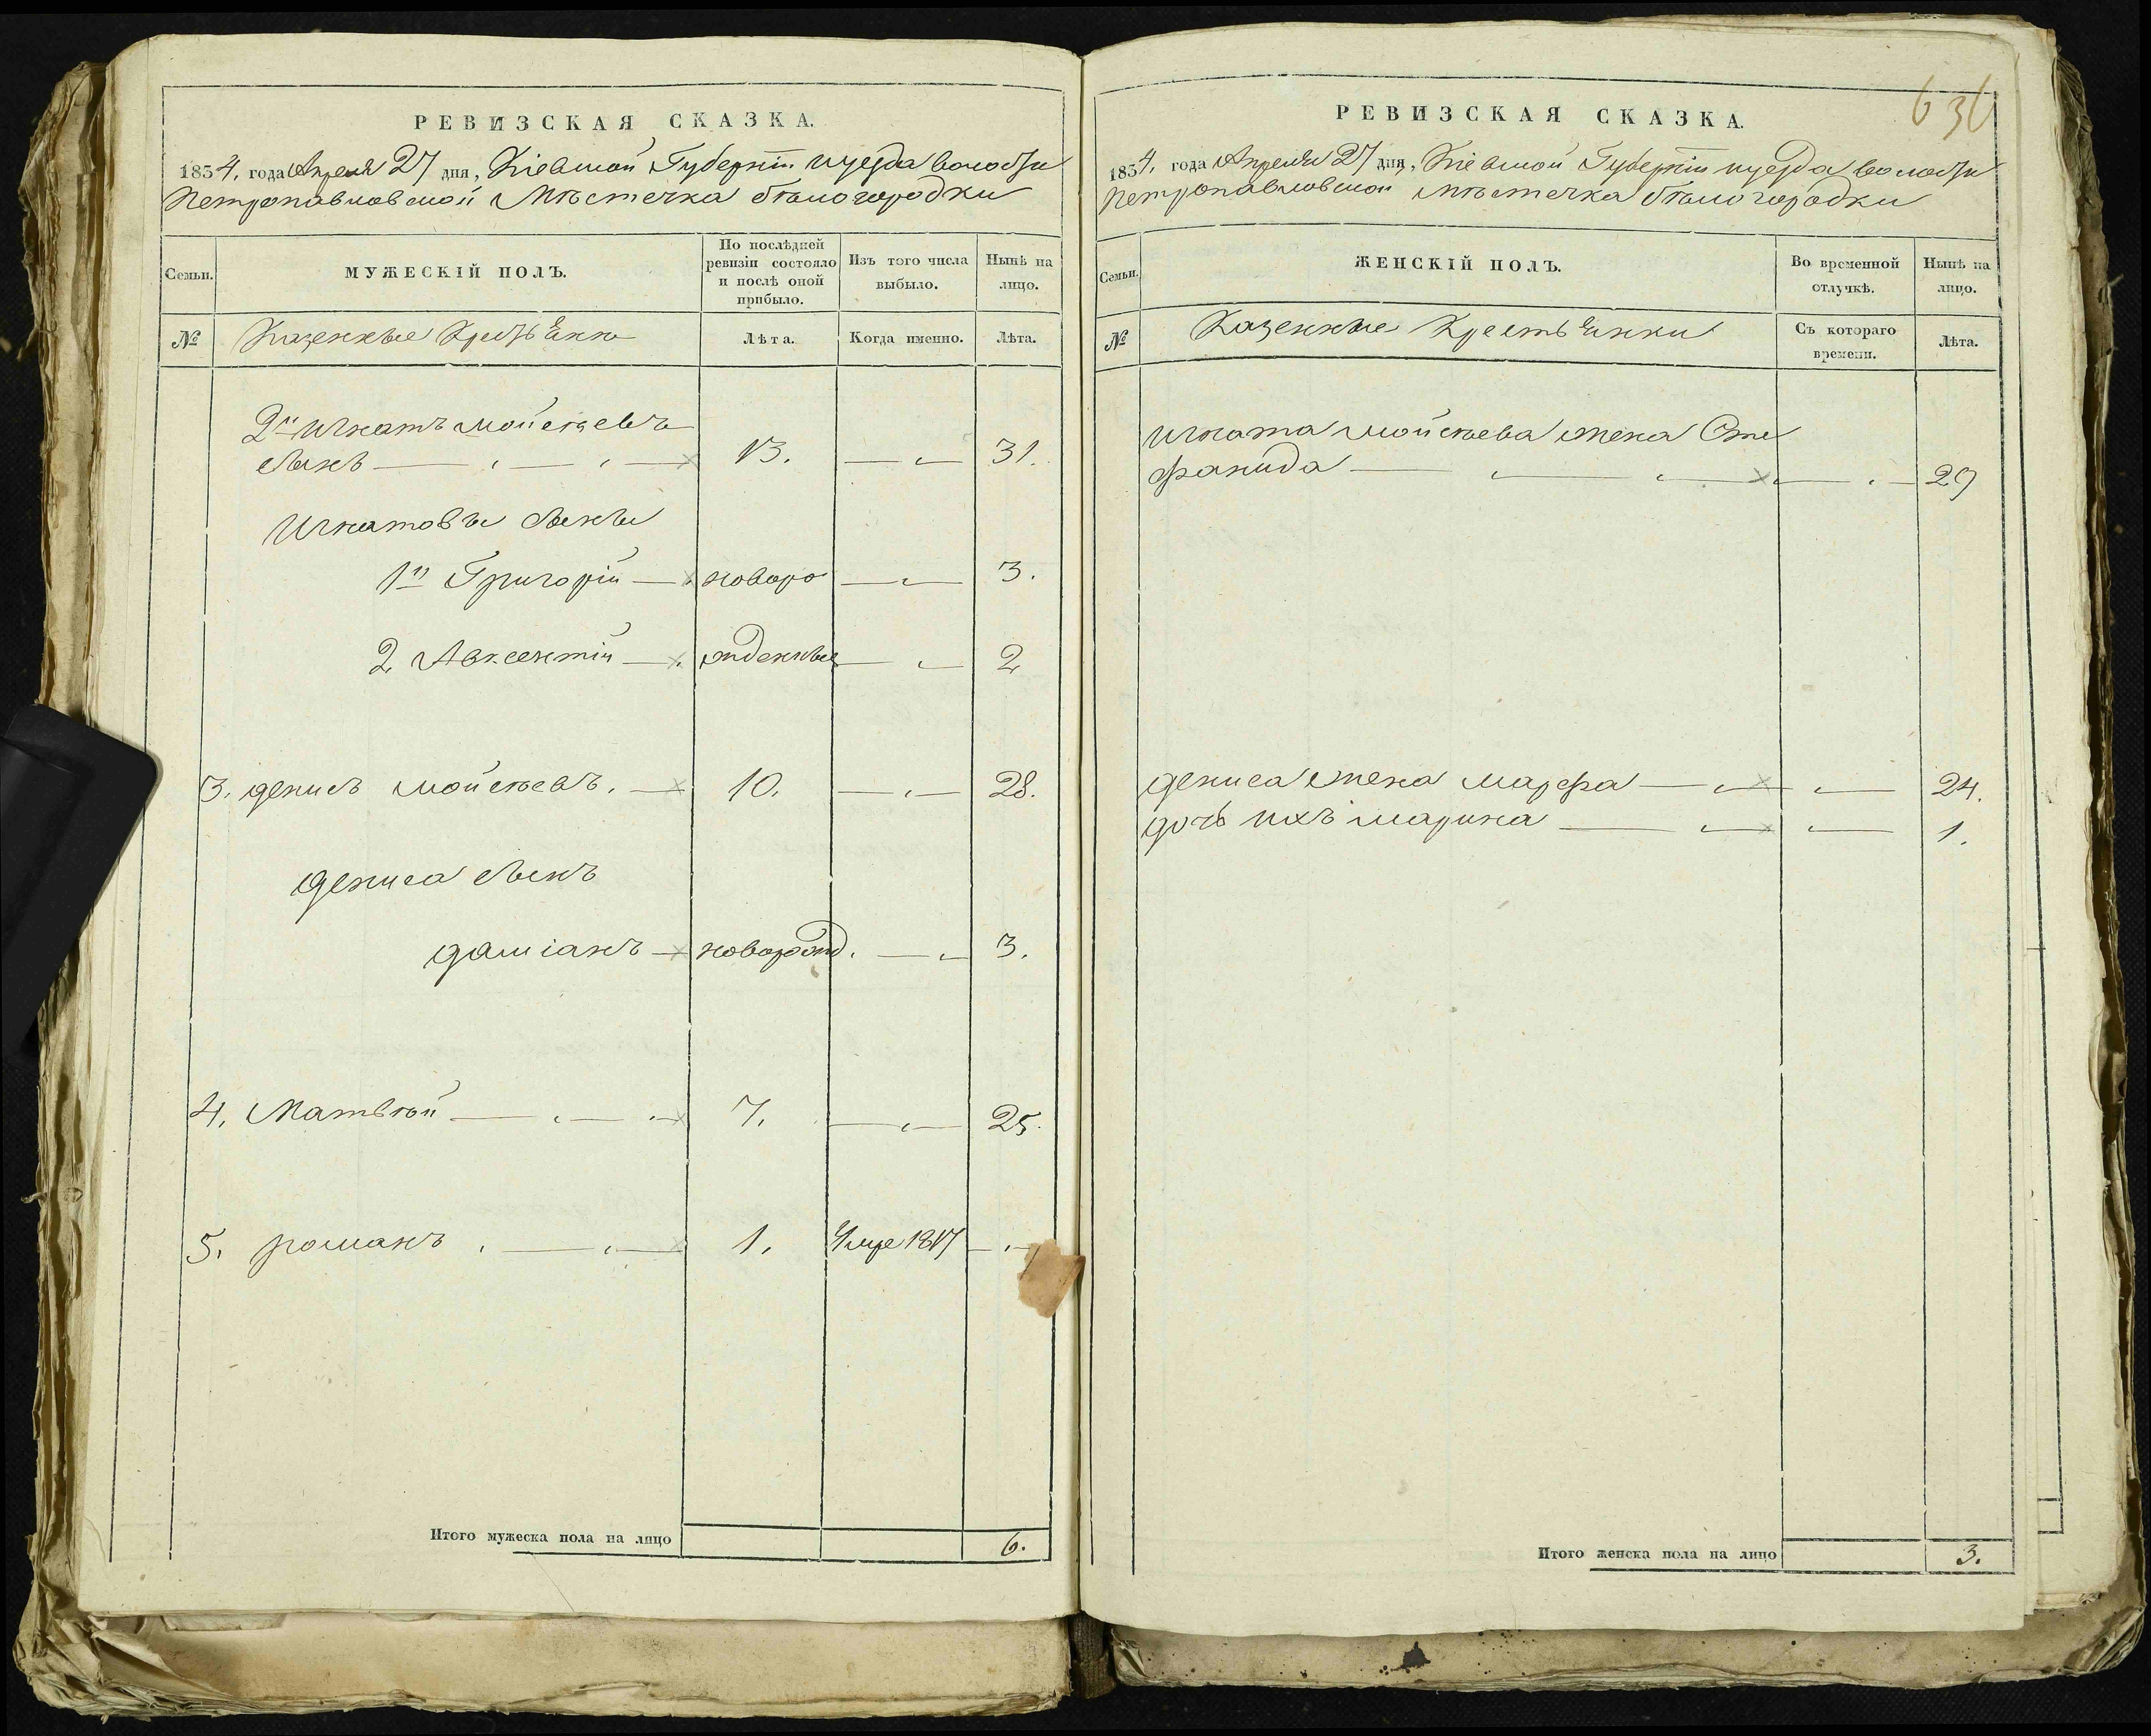 РЕВИЗСКАЯ СКАЗКА.
1834. года Апреля 27 дня, Кіевской Губерніи и уезда волости
Петропавловской Мѣстечка бѣлогородки
Семьи.
МУЖЕСКІЙ ПОЛЪ.
По послѣдней ревизіи состояло и послѣ оной прибыло.
Изъ того числа выбыло.
Нынѣ на лицо.
№
Казенные Крестьяне
Лѣта.
Когда именно.
Лѣта.
2й Игнатъ мойсѣевъ
сынъ 13. 31.
Игнатовы сыны
1й Григорій новоро 3.
2 Авксентій жденные 2
3. денисъ мойсѣевъ. 10. 28.
дениса сынъ
даміанъ новорожд. 3.
4. Матвѣй 7. 25.
5. романъ 1. Умре 1817
Итого мужеска пола на лицо 6.
636
РЕВИЗСКАЯ СКАЗКА.
1834. года Апреля 27 дня, Кіевской Губерніи и уезда волости
Петропавловской Мѣстечка бѣлогородки
Семьи.
ЖЕНСКІЙ ПОЛЪ.
Во временной отлучкѣ.
Нынѣ на лицо.
№
Казенные Крестьянки
Съ котораго времени.
Лѣта.
Игната мойсѣева жена Сте
фанида 29
дениса жена марфа 24.
дочь ихъ марина 1.
Итого женска пола на лицо 3.